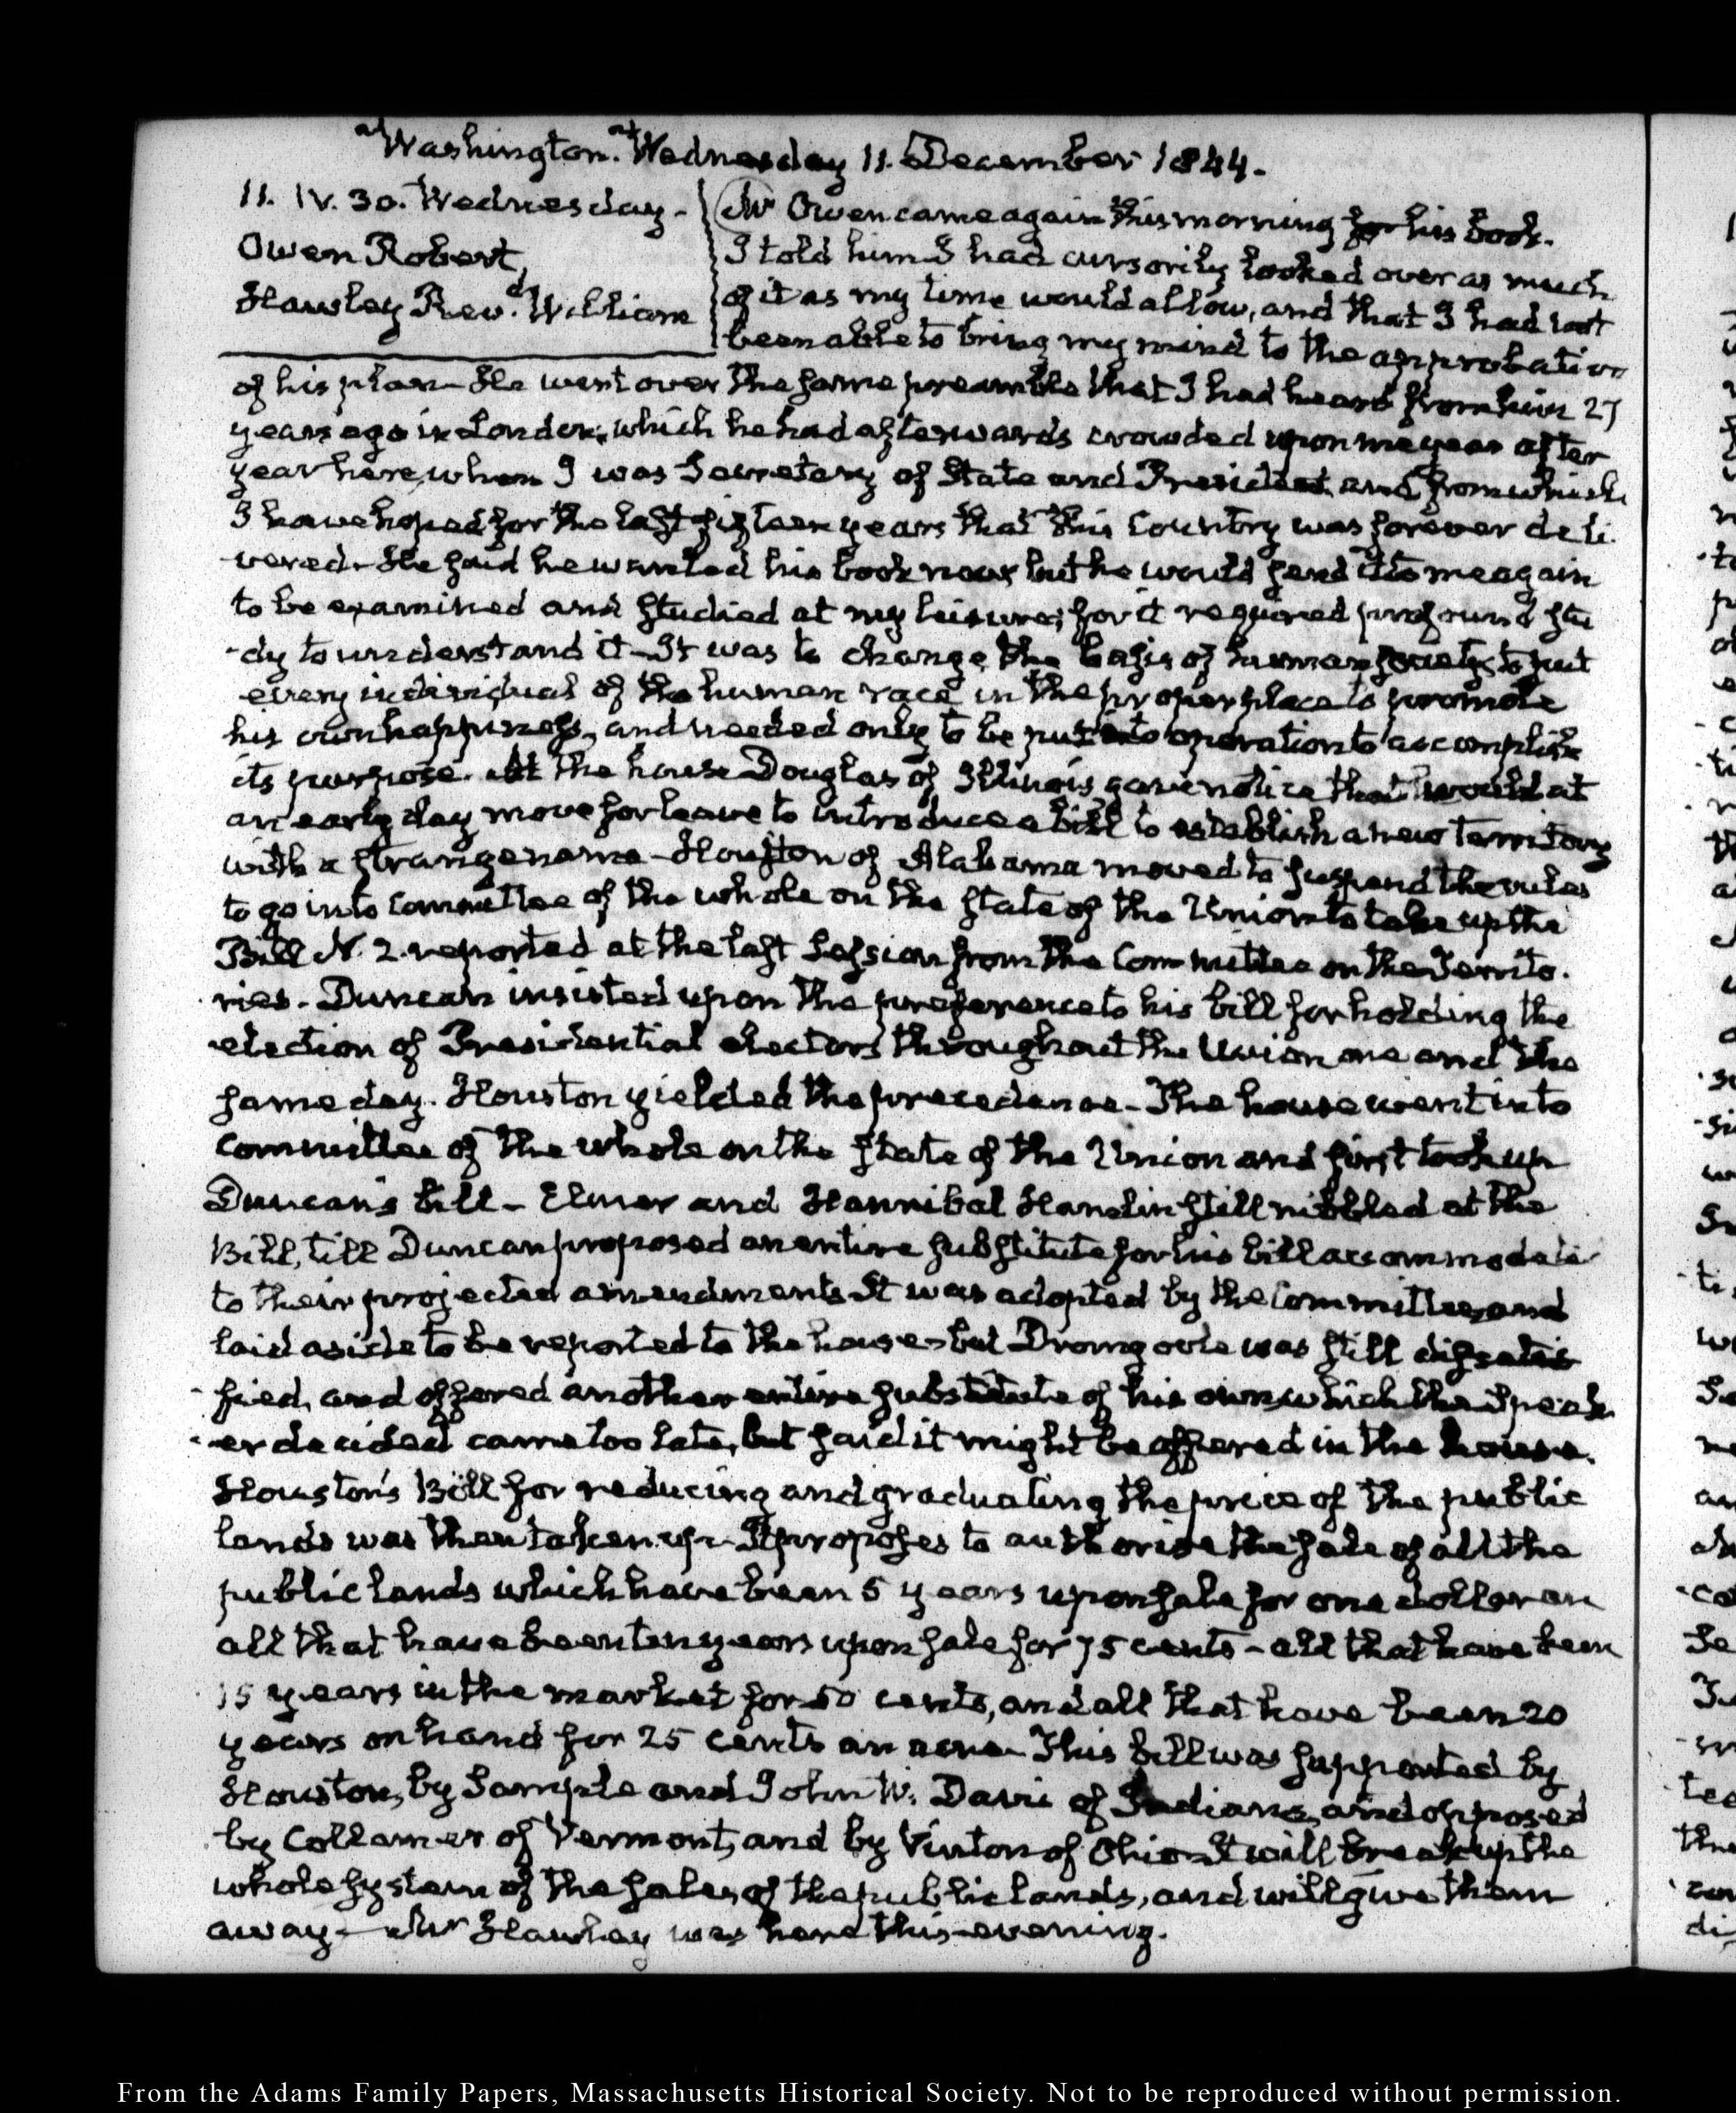 Washington. Wednesday 11. December 1844.
11. IV. 30. Wednesday.
Owen Robert
Hawley Revd. William
Mr Owen came again this morning for his book.
I told him I had cursorily looked over as much
of it as my time would allow, and that I had not
been able to bring my mind to the approbation
of his plan— He went over the same preamble that I had heard from him 27
years ago in London, which he had afterwards crowded upon me year after
year here, when I was Secretary of State and President, and from which
I have hoped for the last fifteen years that this Country was forever deli-
-vered. He said he wanted his book now, but he would send it to me again
to be examined and studied at my leisure; for it required profound stu
-dy to understand it— It was to change the basis of human society, to put
every individual of the human race in the proper place to promote
his own happiness, and needed only to be put into operation to accomplish
its purpose. At the house Douglas of Illinois gave notice that he would at
an early day move for leave to introduce a bill to establish a new territory
with a strange name— Houston of Alabama moved to suspend the rules
to go into Committee of the whole on the state of the Union to take up the
Bill N. 2. reported at the last Session from the Committee on the Territo-
ries— Duncan insisted upon the preference to his bill for holding the
election of Presidential electors throughout the Union one and the
same day. Houston yielded the precedence— The house went into
committee of the whole on the state of the Union and first took up
Duncan's bill— Elmer and Hannibal Hamlin still nibbled at the
Bill, till Duncan proposed an entire substitute for his bill accommodated
to their projected amendments It was adopted by the Committee, and
laid aside to be reported to the house— but Dromgoole was still dissatis
-fied, and offered another entire substitute of his own, which the Speak
-er decided came too late, but said it might be offered in the house.
Houston's Bill for reducing and graduating the price of the public
lands was then taken up— It proposes to authorise the sale of all the
public lands which have been 5 years upon sale for one dollar an
all that have been ten years upon sale for 75 cents— all that have been
15 years in the market for 50 cents, and all that have been 20
years on hand for 25 cents an acre— This bill was supported by
Houston, by Sample and John W. Davis of Indiana, and opposed
by Collamer of Vermont, and by Vinton of Ohio— It will break up the
whole system of the sales of the public lands, and will give them
away— Mr Hawley was here this evening.
From the Adams Family Papers, Massachusetts Historical Society. Not to be reproduced without permission.